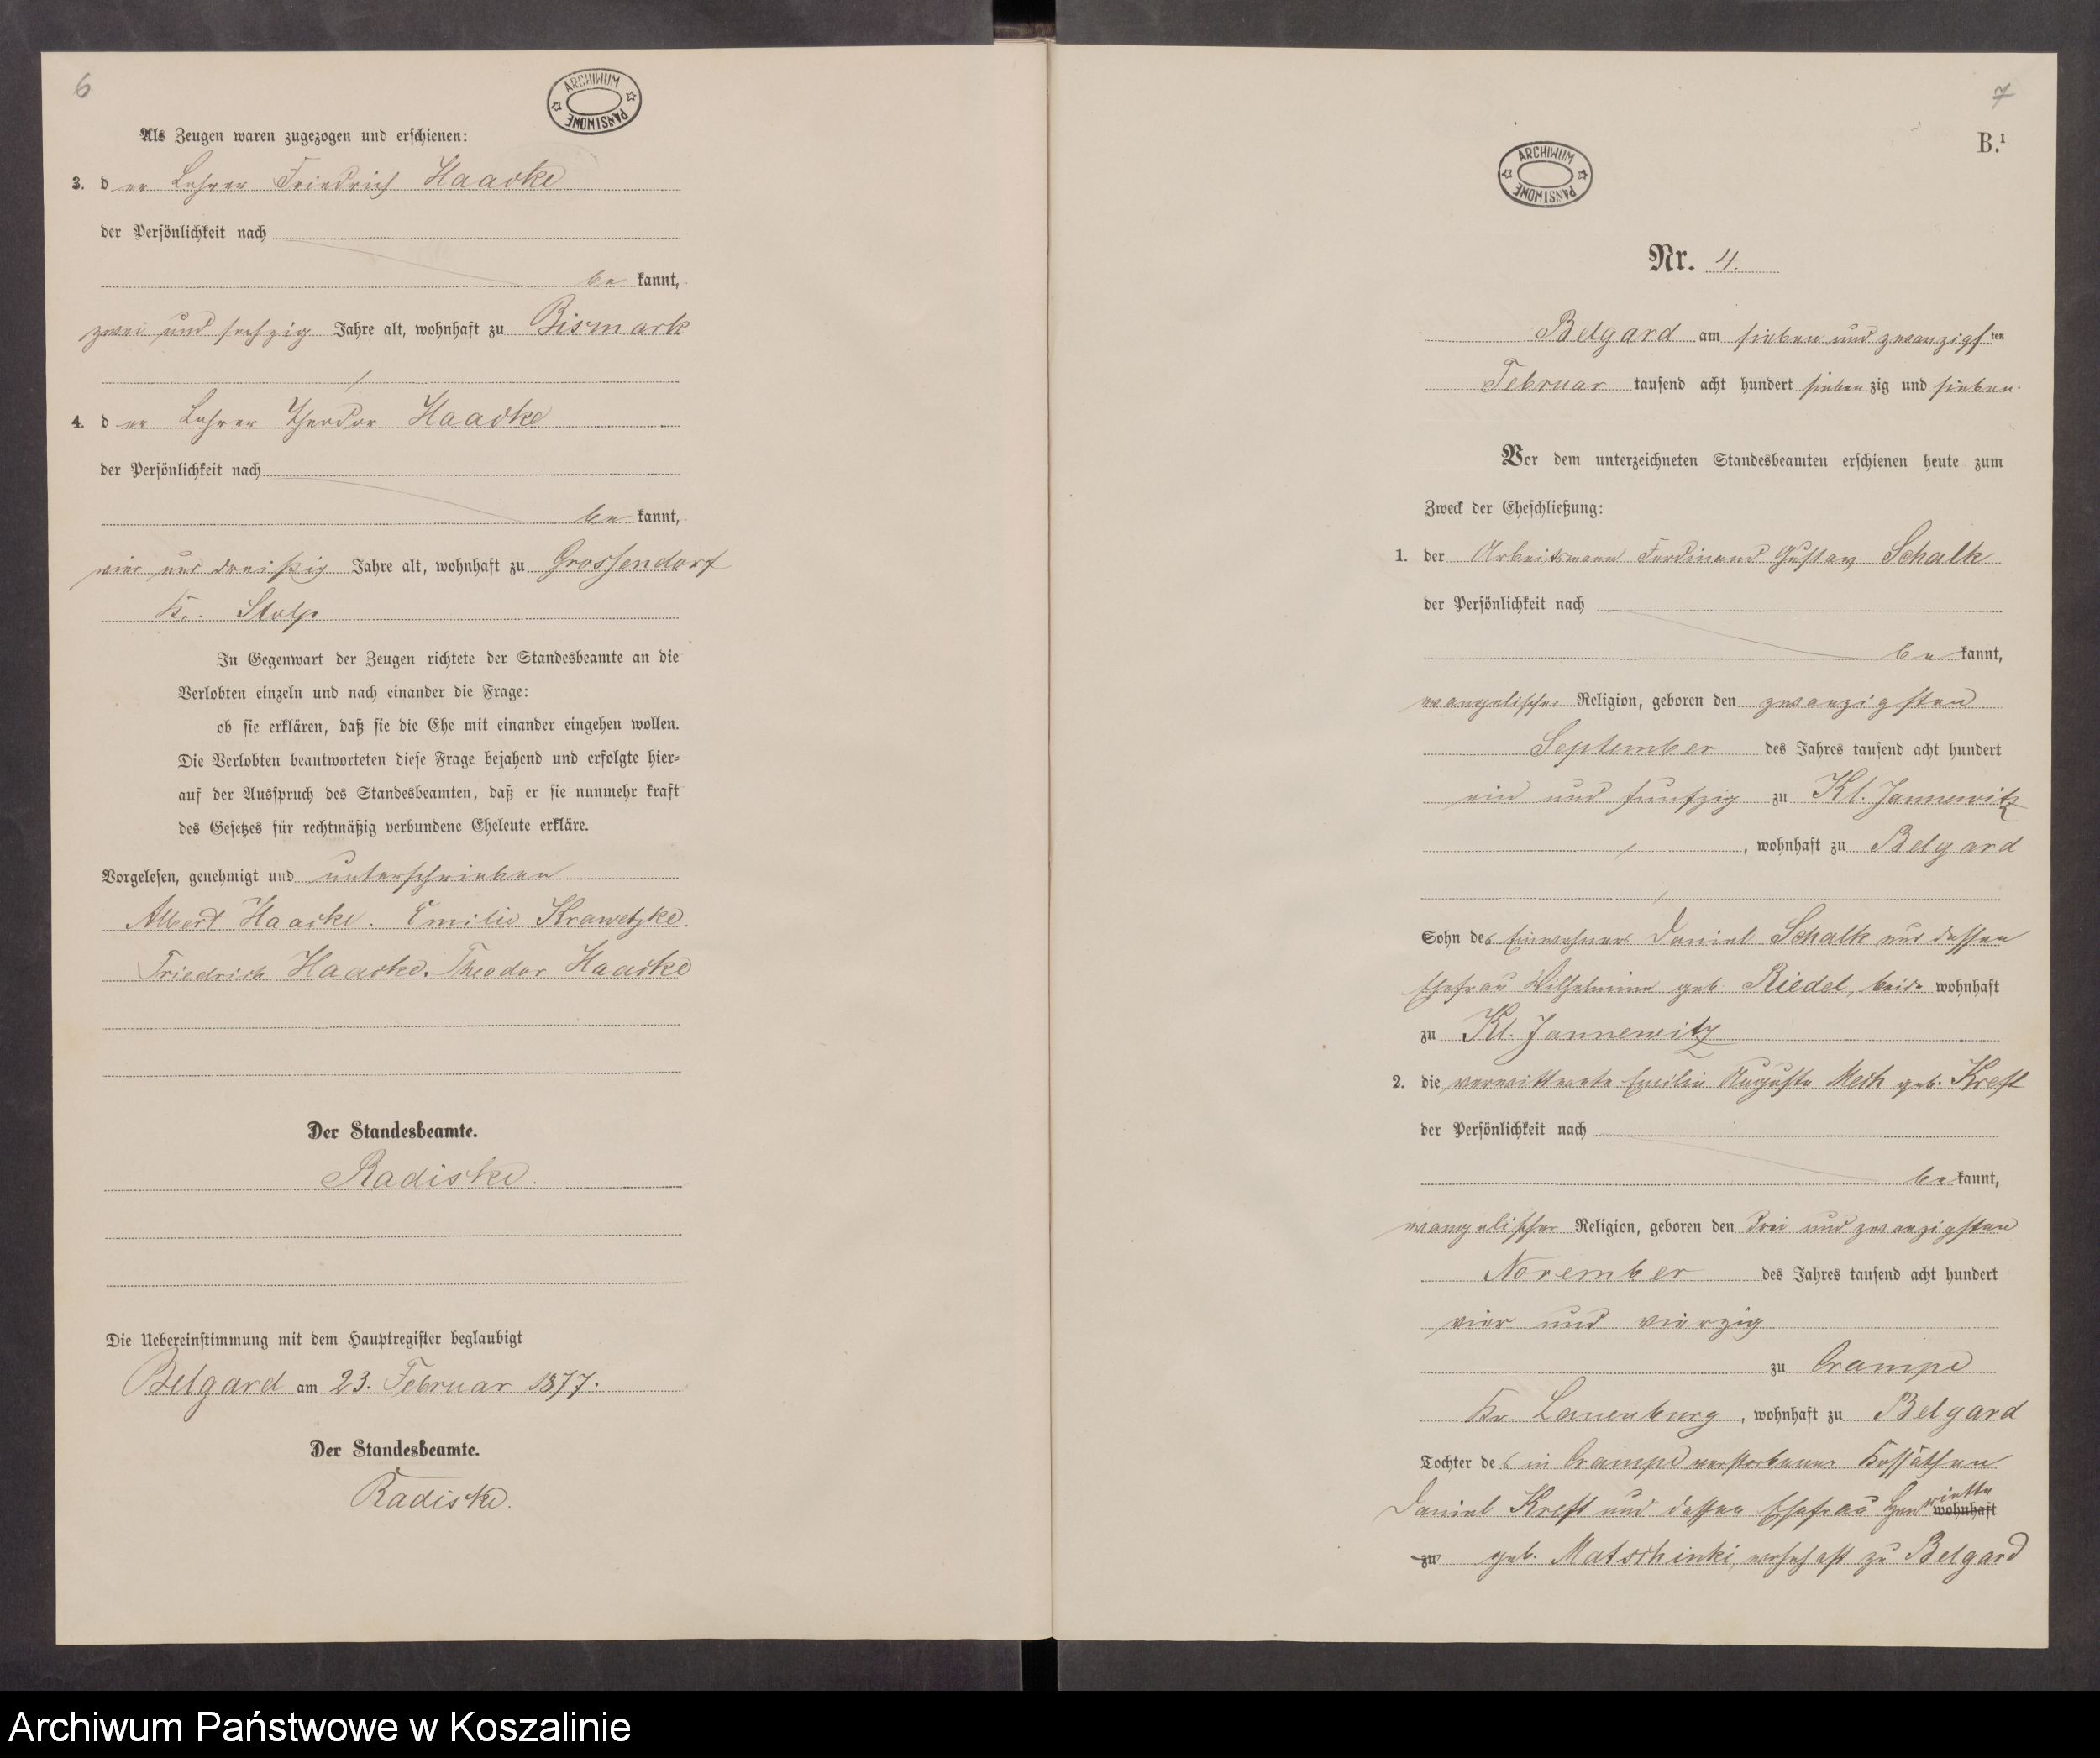 6
ARCHIWUM PAŃSTWOWE
Als Zeugen waren zugezogen und erschienen:
3. der Lehrer Friedrich Haacke
der Persönlichkeit nach
bekannt,
zwei und sechzig Jahre alt, wohnhaft zu Bismark
4. der Lehrer Theodor Haacke
der Persönlichkeit nach
bekannt,
vier und dreißig Jahre alt, wohnhaft zu Grossendorf
Kr. Stolp
In Gegenwart der Zeugen richtete der Standesbeamte an die
Verlobten einzeln und nach einander die Frage:
ob sie erklären, daß sie die Ehe mit einander eingehen wollen.
Die Verlobten beantworteten diese Frage bejahend und erfolgte hier-
auf der Ausspruch des Standesbeamten, daß er sie nunmehr kraft
des Gesetzes für rechtmäßig verbundene Eheleute erkläre.
Vorgelesen, genehmigt und unterschrieben
Albert Haacke. Emilie Krawetzke.
Friedrich Haacke. Theodor Haacke
Der Standesbeamte.
Radiske.
Die Uebereinstimmung mit dem Hauptregister beglaubigt
Belgard am 23. Februar 1877.
Der Standesbeamte.
Radiske.
7
B.¹
ARCHIWUM PAŃSTWOWE
Nr. 4.
Belgard am sieben und zwanzigsten
Februar tausend acht hundert siebenzig und sieben.
Vor dem unterzeichneten Standesbeamten erschienen heute zum
Zweck der Eheschließung:
1. der Arbeitsmann Ferdinand Gustav Schalk
der Persönlichkeit nach
bekannt,
evangelischer Religion, geboren den zwanzigsten
September des Jahres tausend acht hundert
ein und funfzig zu Kl. Jannewitz
, wohnhaft zu Belgard
Sohn des Einwohners Daniel Schalk und dessen
Ehefrau Wilhelmine geb. Riedel, beide wohnhaft
zu Kl. Jannewitz
2. die verwittwete Emilie Auguste Mech geb. Kreft
der Persönlichkeit nach
bekannt,
evangelischer Religion, geboren den drei und zwanzigsten
November des Jahres tausend acht hundert
vier und vierzig
zu Crampe
Kr. Lauenburg, wohnhaft zu Belgard
Tochter des in Crampe verstorbenen Kossäthen
Daniel Kreft und dessen Ehefrau Henriette wohnhaft
zu geb. Matschinki, wohnhaft zu Belgard
Archiwum Państwowe w Koszalinie